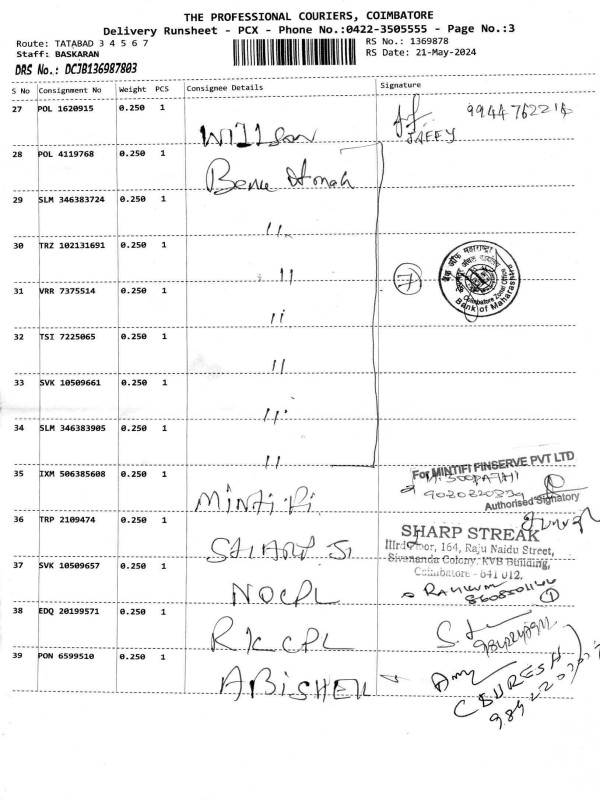 THE PROFESSIONAL COURIERS, COIMBATORE
Delivery Runsheet - PCX - Phone No.:0422-3505555 - Page No.:3
Route: TATABAD 3 4 5 6 7
RS No.: 1369878
Staff: BASKARAN
RS Date: 21-May-2024
DRS No.: DCJB136987803
S No Consignment No Weight PCS Consignee Details Signature
27 POL 1620915 0.250 1
Willson JAFFY
28 POL 4119768 0.250 1
29 SLM 346383724 0.250 1
11
30 TRZ 102131691 0.250 1
11
31 VRR 7375514 0.250 1
11
32 TSI 7225065 0.250 1
11
33 SVK 10509661 0.250 1
11
34 SLM 346383905 0.250 1
11
7
बैंक ऑफ महाराष्ट्र
Coimbatore Zonal Office
Bank of Maharashtra
35 IXM 506385608 0.250 1
For MINTIFI FINSERVE PVT LTD
Authorised Signatory
36 TRP 2109474 0.250 1
SHARP STREAK
IIIrd Floor, 164, Raju Naidu Street,
Sivananda Colony, KVB Building,
Coimbatore - 641 012.
37 SVK 10509657 0.250 1
NOCPL
1
38 EDQ 20199571 0.250 1
RKCPL
39 PON 6599510 0.250 1
C SURESH